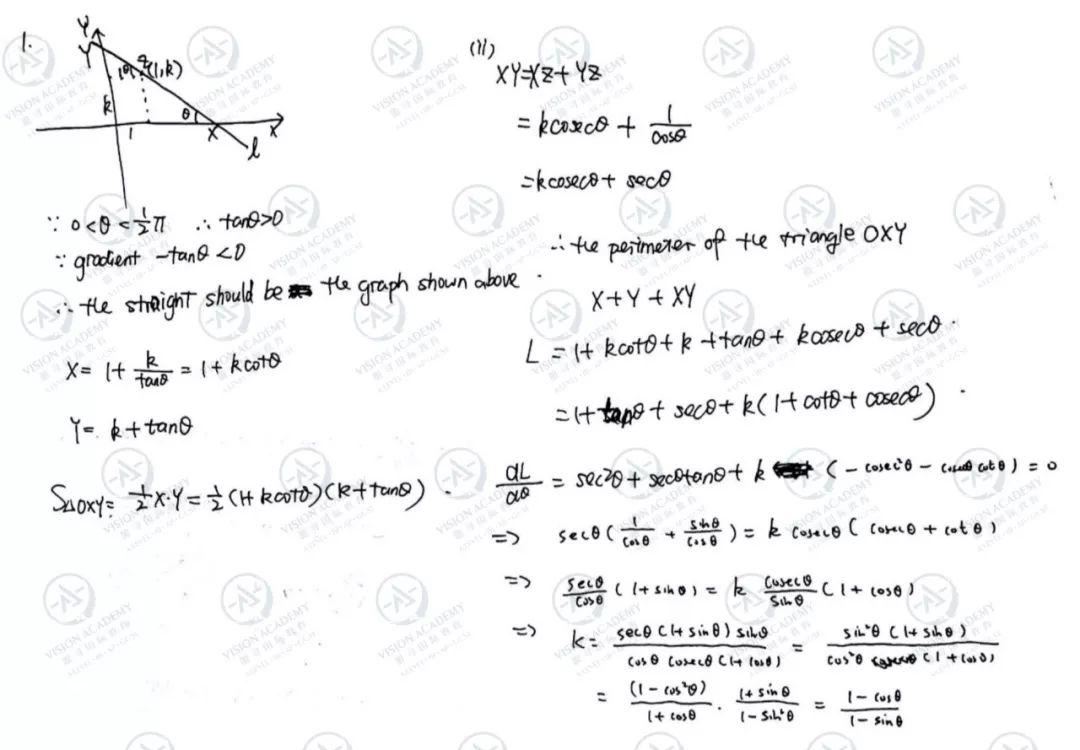 1.
Y
Y
θ
Z(1,k)
k
θ
1
X
x
l
∵ 0<θ<½π ∴ tanθ>0
∵ gradient -tanθ<0
∴ the straight should be the graph shown above.
X= 1+ k/tanθ = 1+kcotθ
Y= k+tanθ
S△OXY= ½X·Y=½(1+kcotθ)(k+tanθ).
(ii)
XY=XZ+YZ
= kcosecθ + 1/cosθ
=kcosecθ+ secθ
∴ the perimeter of the triangle OXY
X+Y+XY
L = 1+ kcotθ+k+tanθ+ kcosecθ+secθ.
=1+tanθ+secθ+k(1+cotθ+cosecθ).
dL/dθ = sec²θ+secθtanθ+k (-cosec²θ-cosecθcotθ)=0
=> secθ(1/cosθ + sinθ/cosθ)= k cosecθ(cosecθ+cotθ)
=> secθ/cosθ (1+sinθ)= k cosecθ/sinθ (1+cosθ)
=> k= secθ(1+sinθ)sinθ/cosθ cosecθ(1+cosθ) = sin²θ(1+sinθ)/cos²θ (1+cosθ)
= (1-cos²θ)/1+cosθ · 1+sinθ/1-sin²θ = 1-cosθ/1-sinθ
VISION ACADEMY